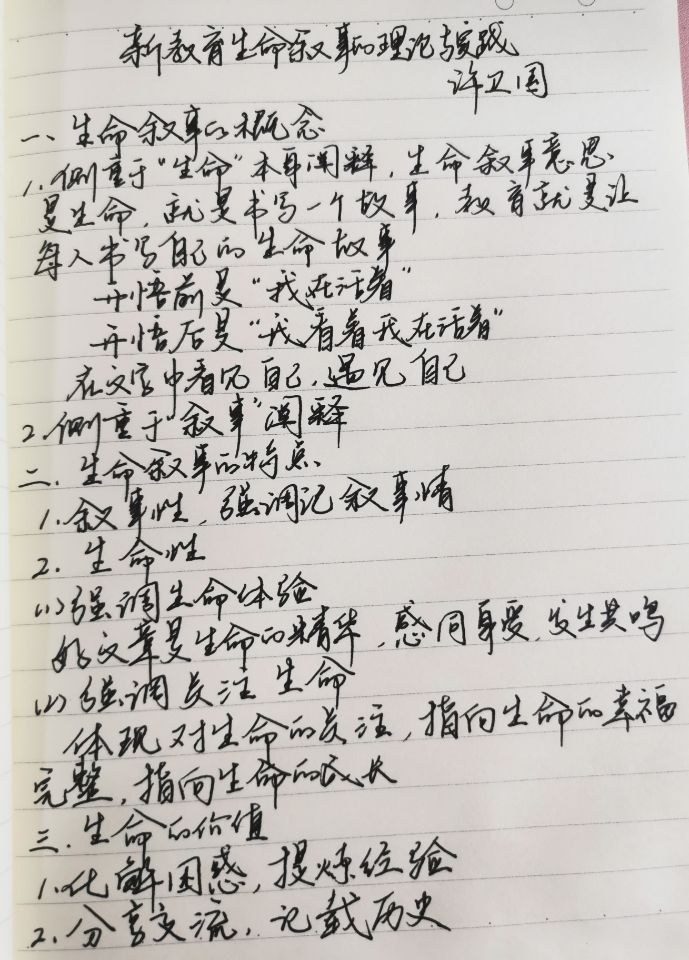 新教育生命叙事的理论与实践
许卫国
一、生命叙事的概念
1.侧重于“生命”本身阐释，生命叙事意思
是生命，就是书写一个故事，教育就是让
每人书写自己的生命故事
开悟前是“我在活着”
开悟后是“我看着我在活着”
在文字中看见自己，遇见自己
2.侧重于“叙事”阐释
二.生命叙事的特点
1.叙事性，强调记叙事情
2.生命性
(1)强调生命体验
好文章是生命的精华，感同身受，发生共鸣
(2)强调关注生命
体现对生命的关注，指向生命的幸福
完整，指向生命的成长
三.生命的价值
1.化解困惑，提炼经验
2.分享交流，记载历史